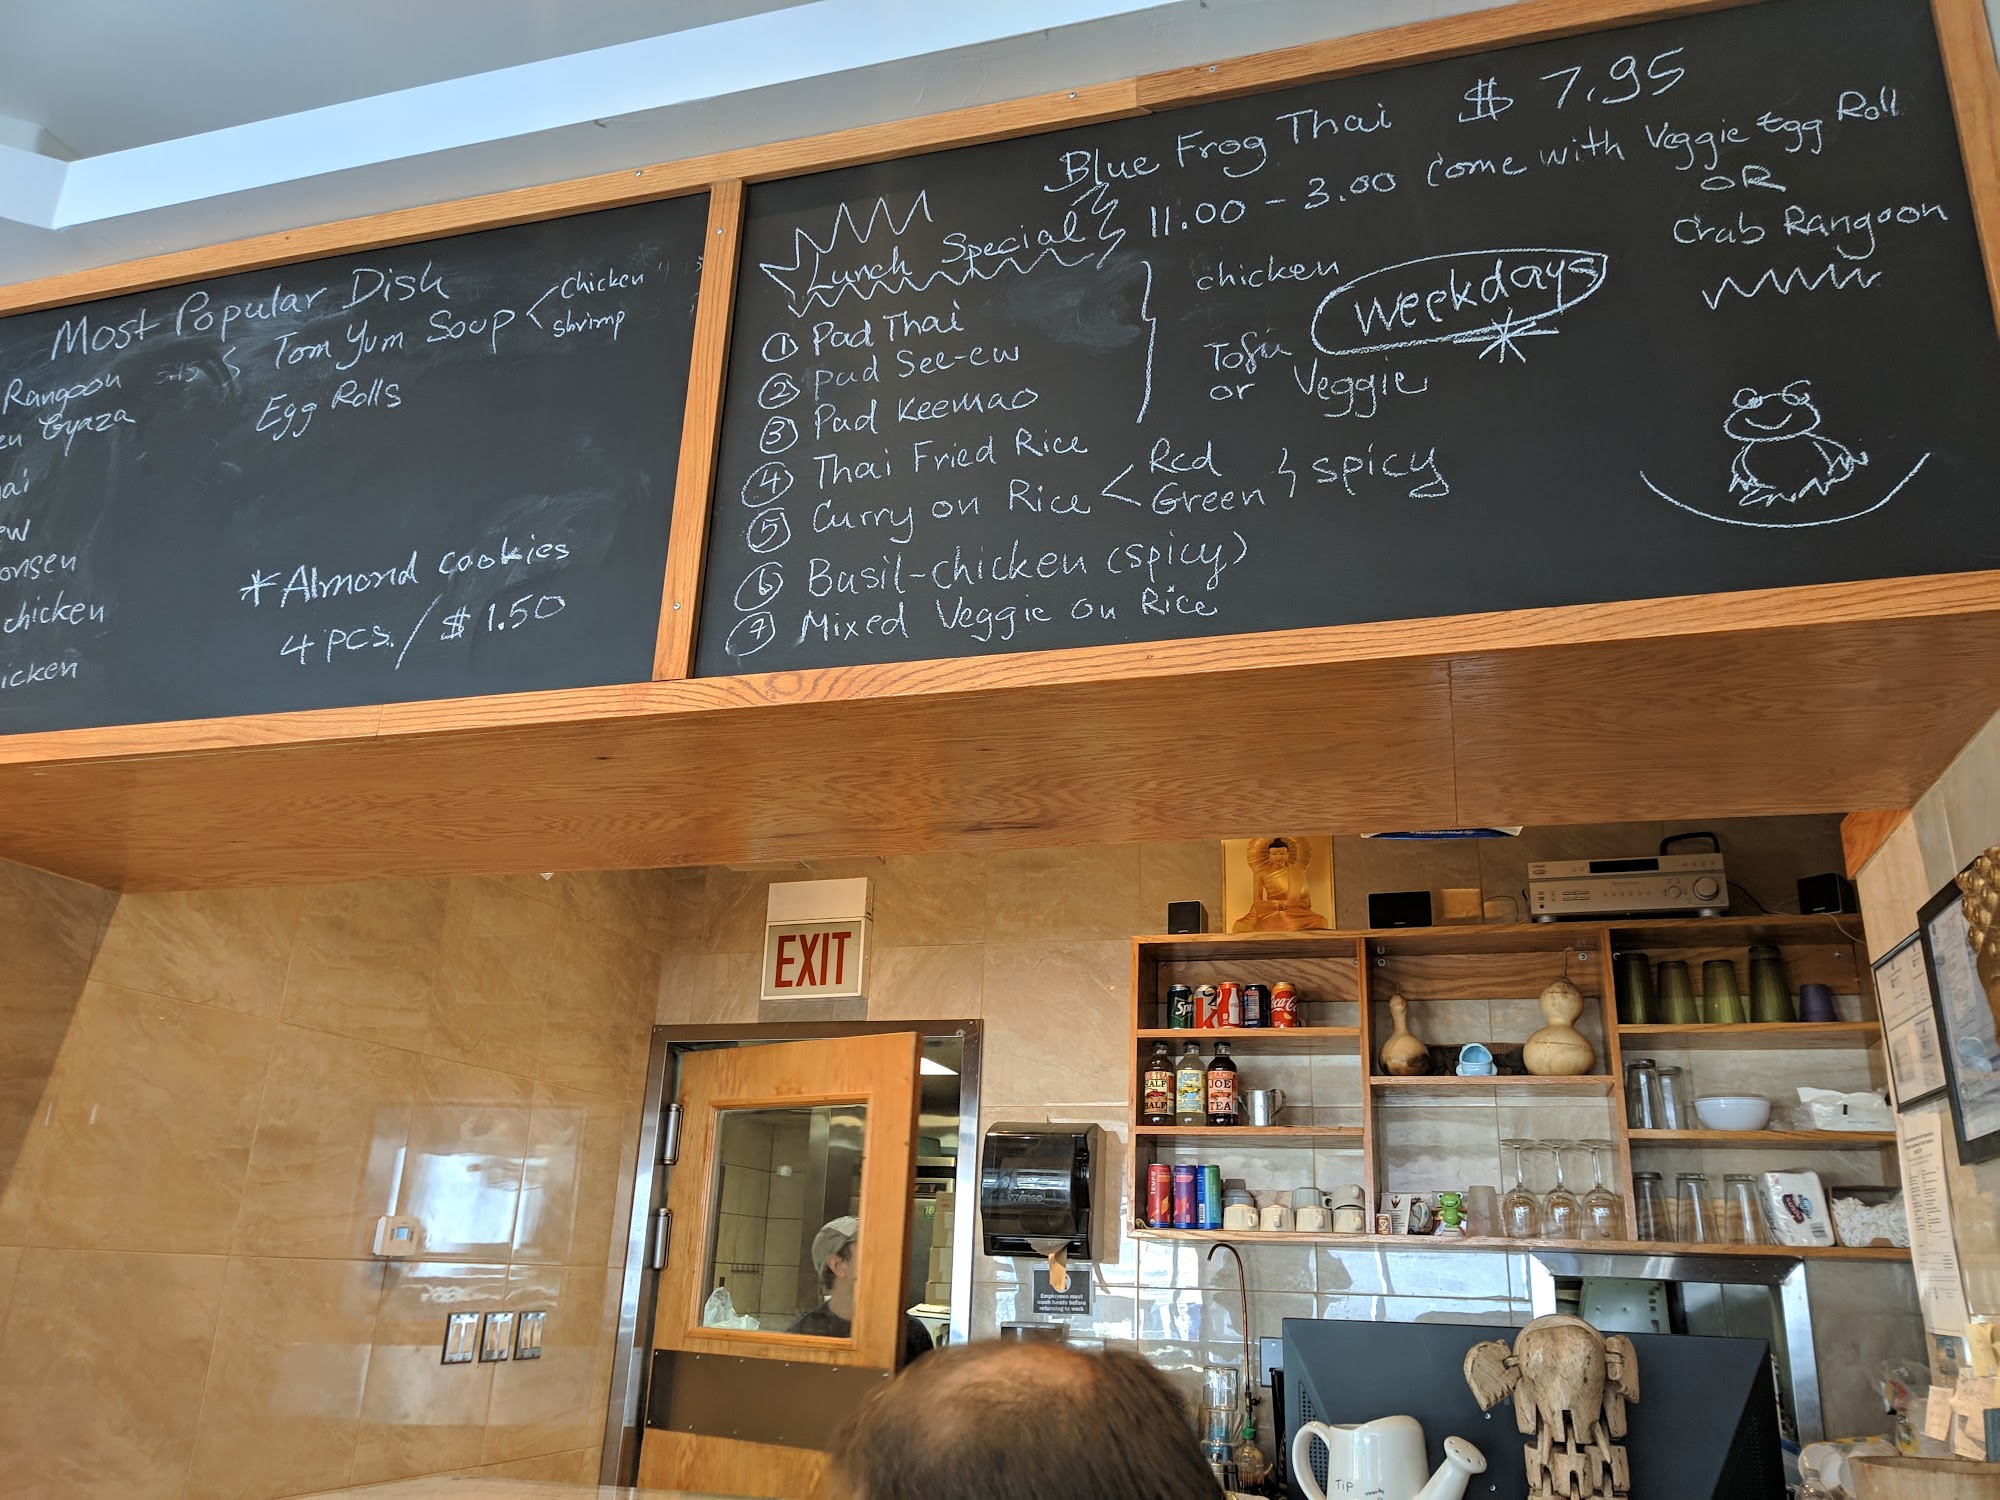 Most Popular Dish
Rangoon
Gyaza
chicken
Tom Yum Soup
chicken
shrimp
Egg Rolls
*Almond cookies
4 pcs./$1.50
Blue Frog Thai $7.95
Lunch Special 11.00 - 3.00 come with Veggie Egg Roll
OR
Crab Rangoon
1 Pad Thai
2 Pad See-ew
3 Pad Keemao
4 Thai Fried Rice
5 Curry on Rice
Red
Green
spicy
6 Basil-chicken (spicy)
7 Mixed Veggie on Rice
chicken
Tofu
or Veggie
Weekdays
EXIT
HALF
HALF
JOE
TEA
Employees must
wash hands before
returning to work
TIP